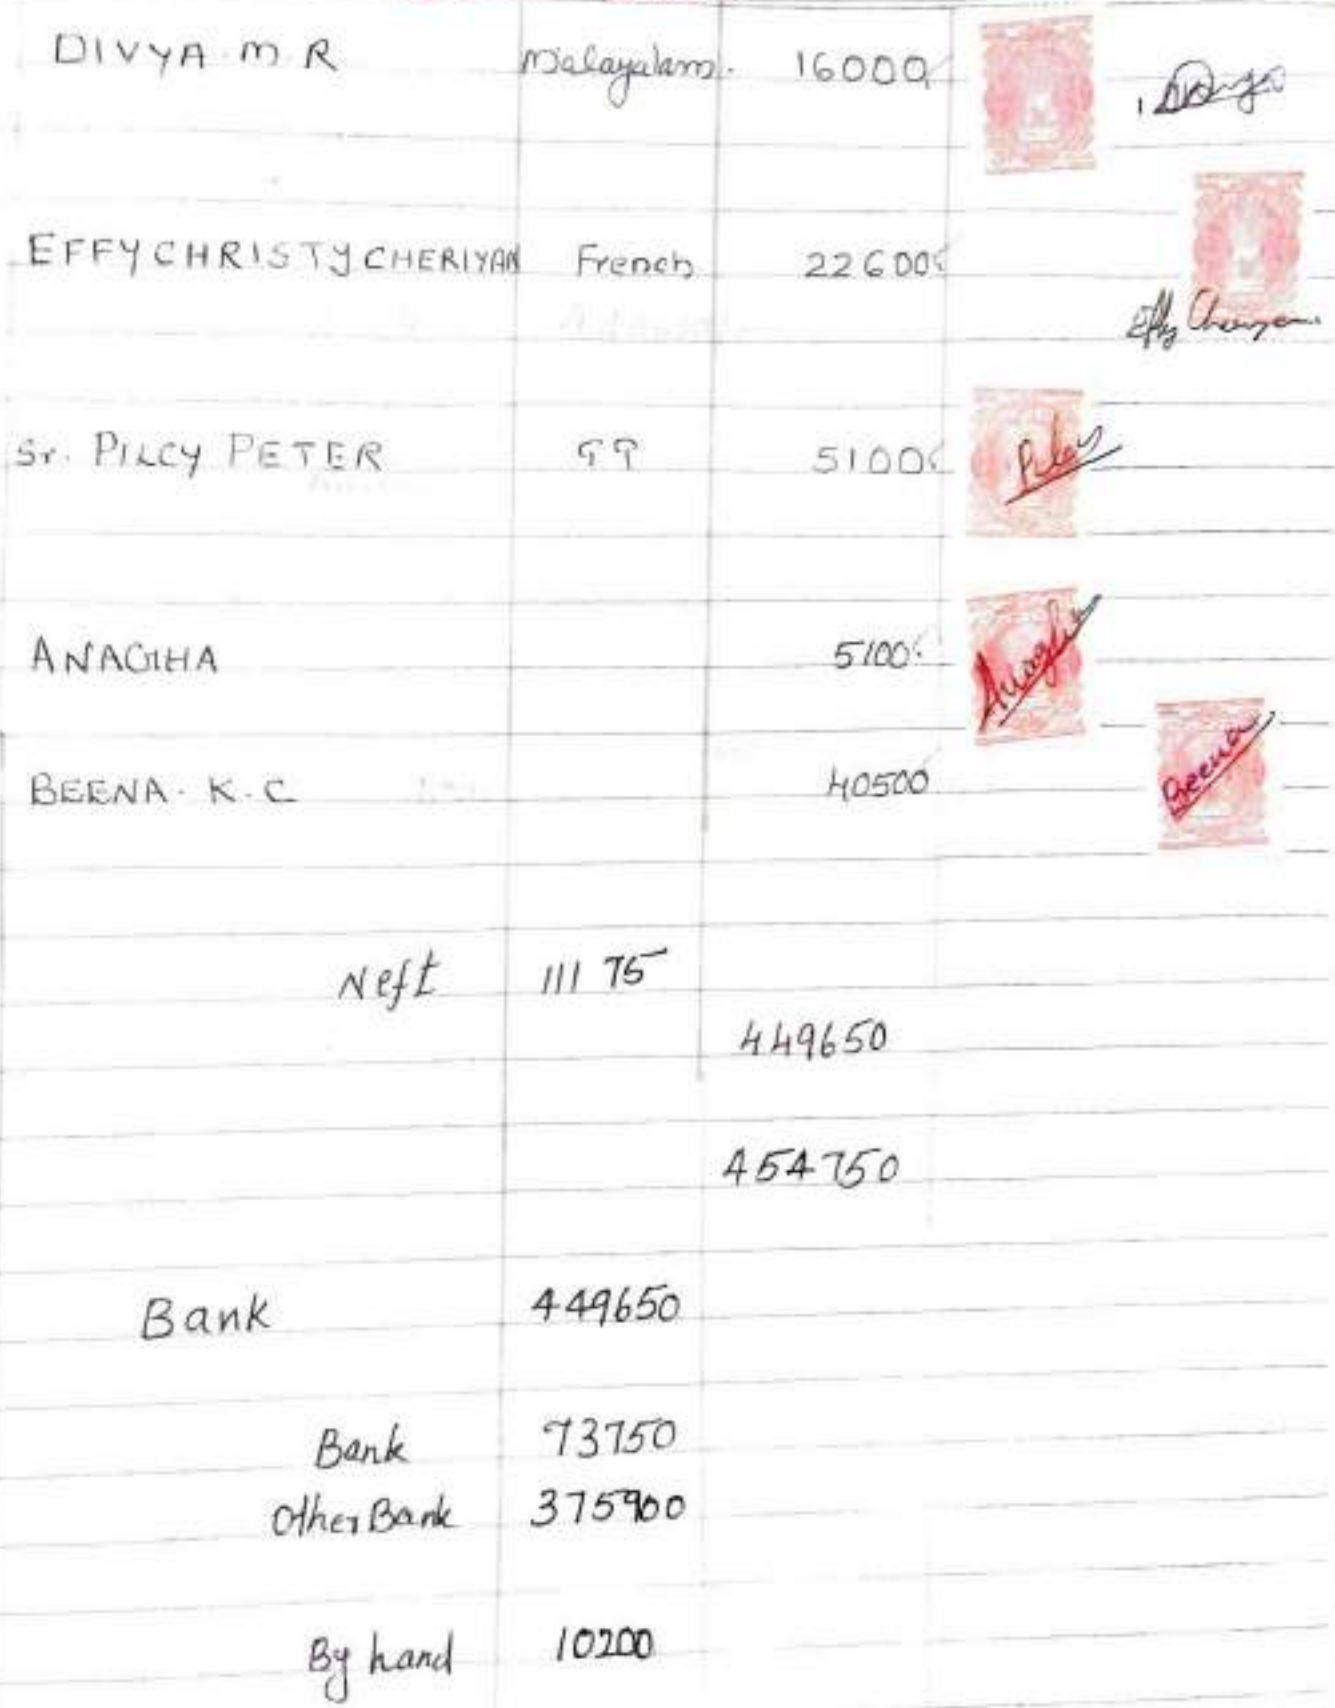 DIVYA. M. R Malayalam. 16000
EFFY CHRISTY CHERIYAN French 22600
Effy Cheriyan
Sr. PILCY PETER 5100 Pilcy
ANAGHA 5100 Anagha
BEENA. K. C 40500 Beena
Neft 111 75
449650
454750
Bank 449650
Bank 73750
Other Bank 375900
By hand 10200